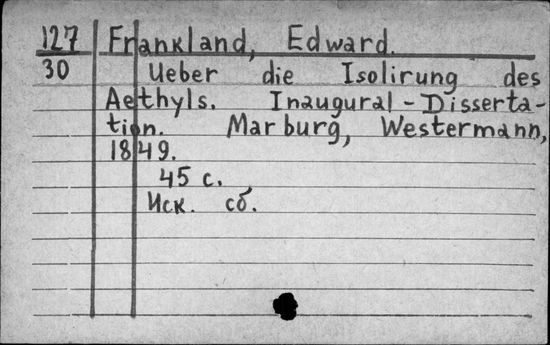 127 Frankland, Edward.
30 Ueber die Isolirung des
Aethyls. Inaugural-Disserta-
tion. Marburg, Westermann,
1849.
45 с.
Иск. сб.